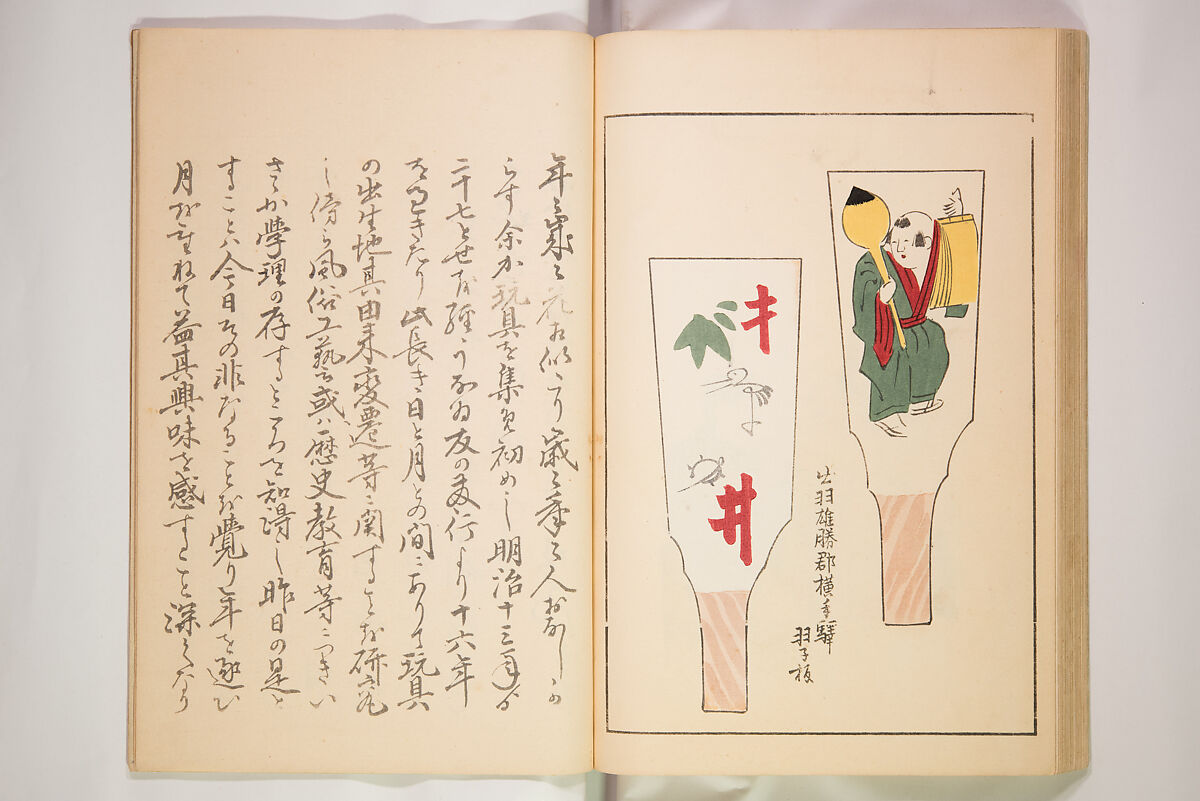 出羽雄勝郡横手驛
羽子板
年々歳々花相似たり歳々年々人おなしか
らす余か玩具を集め初めし明治十三年
二十七とせを経うなゐ友の発行より十六年
を過きたり此長き日と月との間にありて玩具
の出生地其由来變遷等に関することを研究
し傍ら風俗工藝或ハ歴史教育等につきい
さゝか學理の存するところを知得し昨日の是と
することハ今日その非なることを覺り年を逐ひ
月を重ねて益其興味を感すること深くなり